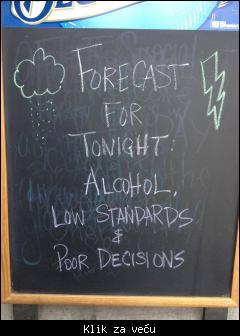 FORECAST
FOR
TONIGHT:
ALCOHOL,
LOW STANDARDS
&
POOR DECISIONS
Klik za veću